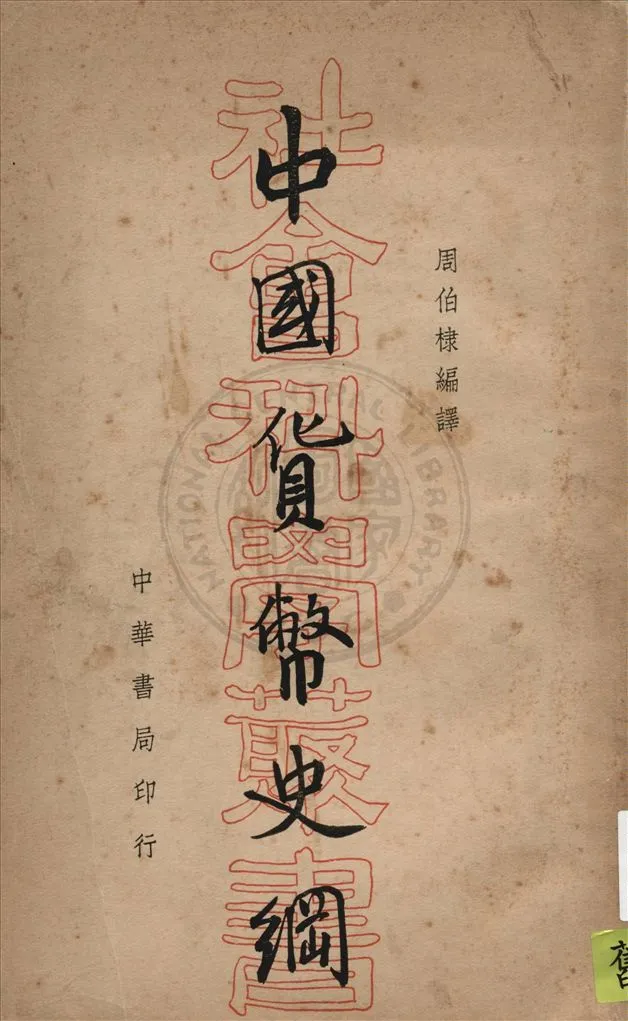 周伯棣編譯
中國貨幣史綱
社會科學叢書
中華書局印行
NATIONAL
LIBRARY
舊